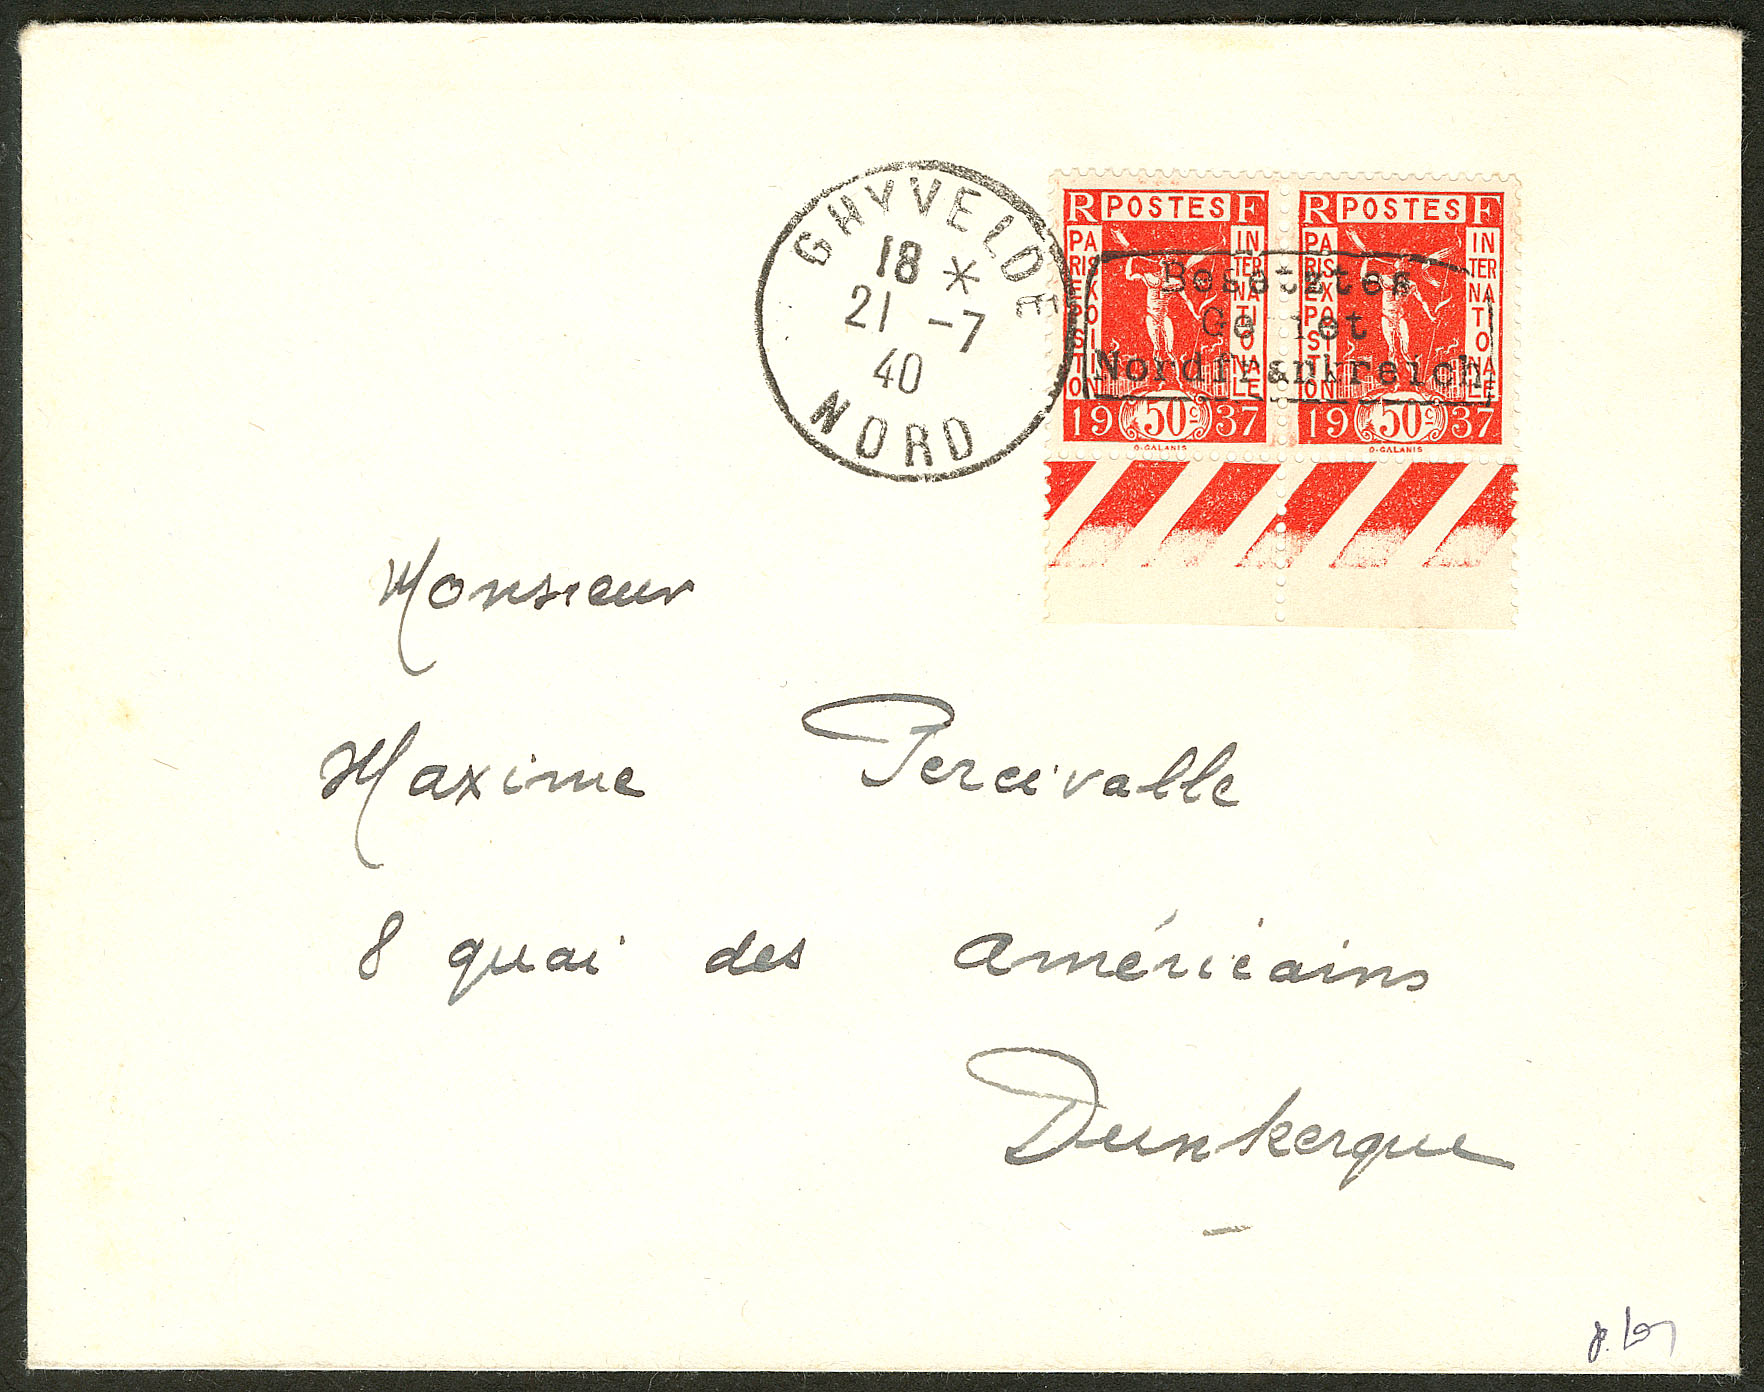 GHYVELDE
18 *
21 -7
40
NORD
R POSTES F
PARIS EXPOSITION
INTERNATIONALE
1937
50c
O·GALANIS
R POSTES F
PARIS EXPOSITION
INTERNATIONALE
1937
50c
O·GALANIS
Besetztes
Ge iet
Nordfrankreich
Monsieur
Maxime Percevalle
8 quai des américains
Dunkerque